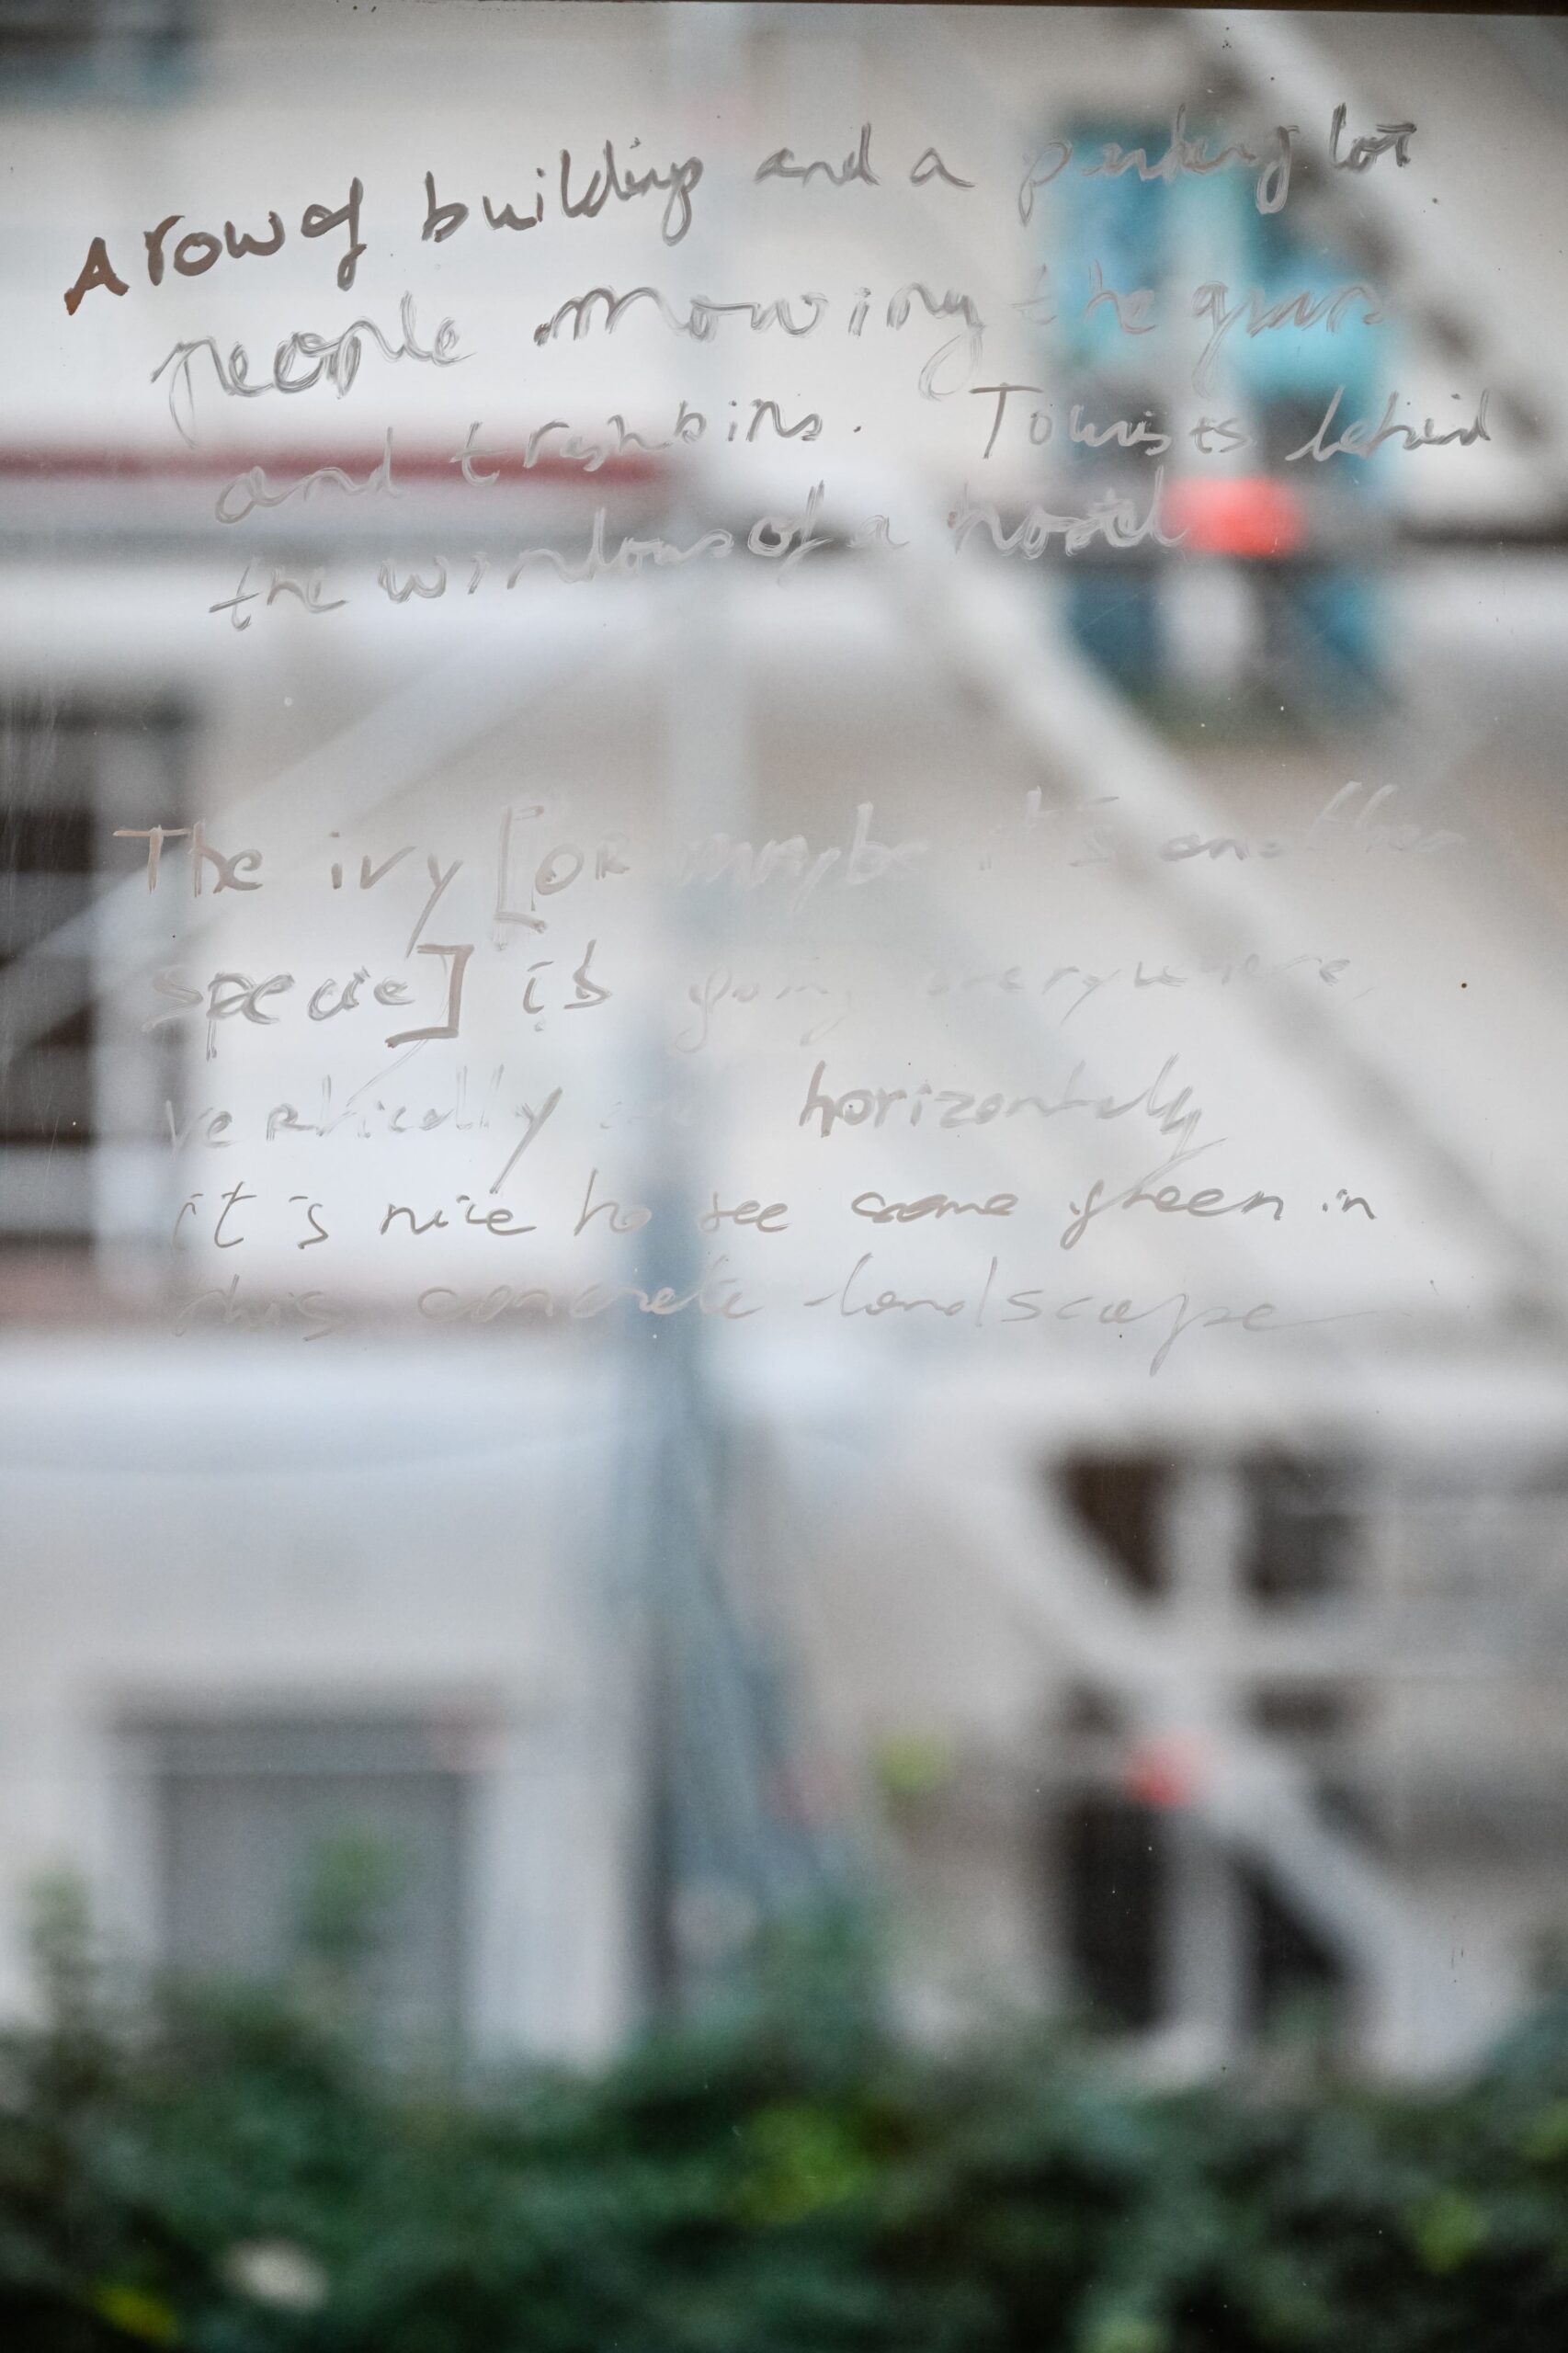 A row of building and a parking lot
people mowing the grass
and trashbins. Tourists behind
the windows of a hostel
The ivy [or maybe it's another
specie] is going everywhere,
vertically and horizontaly
it's nice to see some green in
this concrete landscape